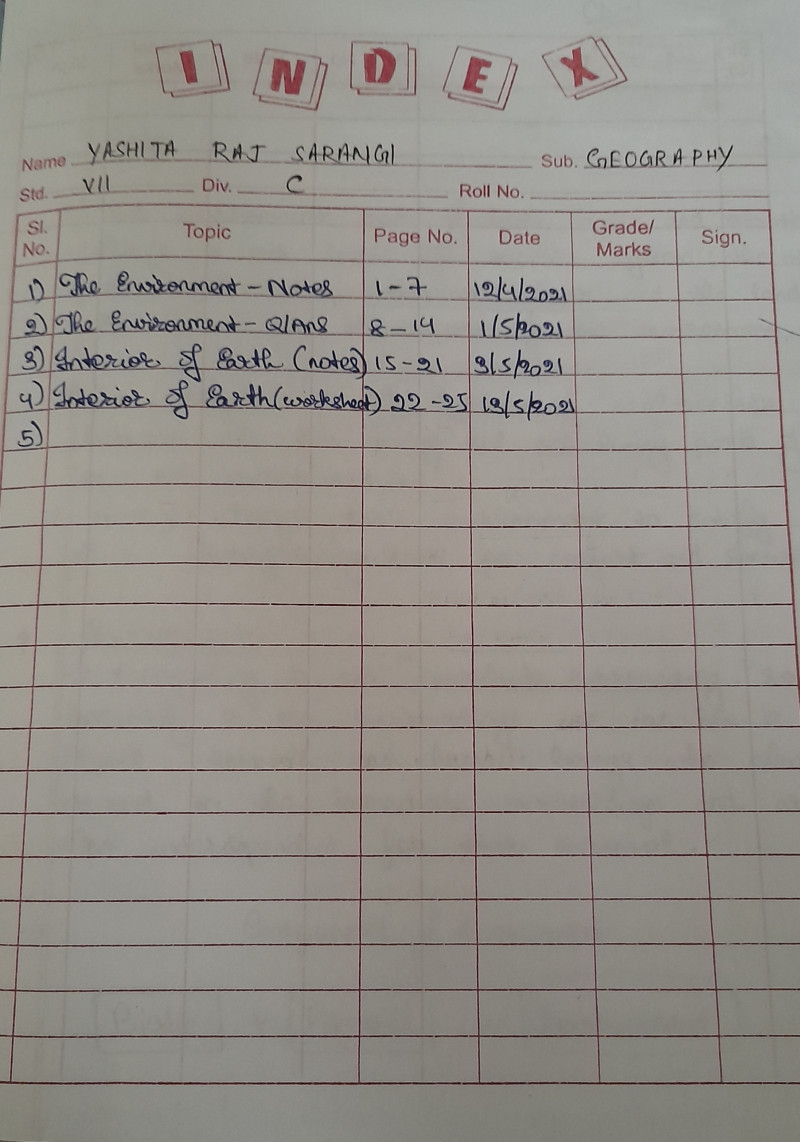 INDEX
Name YASHITA RAJ SARANGI Sub. GEOGRAPHY
Std. VII Div. C Roll No.
Sl. No. Topic Page No. Date Grade/ Marks Sign.
1) The Environment - Notes 1-7 12/4/2021
2) The Environment - Q/Ans 8-14 1/5/2021
3) Interior of Earth (notes) 15-21 3/5/2021
4) Interior of Earth (worksheet) 22-25 13/5/2021
5)